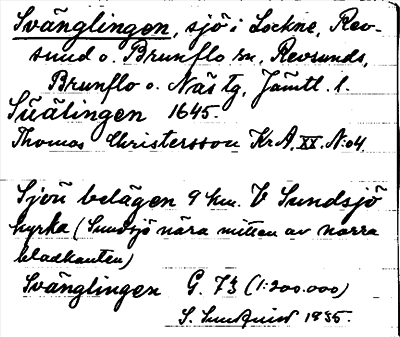 Svänglingen, sjö i Lockne, Rev-
sund o. Brunflo sn, Revsunds,
Brunflo o. Näs tg, Jämtl. l.
Suälingen 1645.
Thomas Christersson KrA. XX. N:o 4.
Sjön belägen 9 km. V Sundsjö
kyrka (Sundsjö nära mitten av norra
bladkanten)
Svänglingen G. 73 (1:200.000)
S. Sundquist 1935.